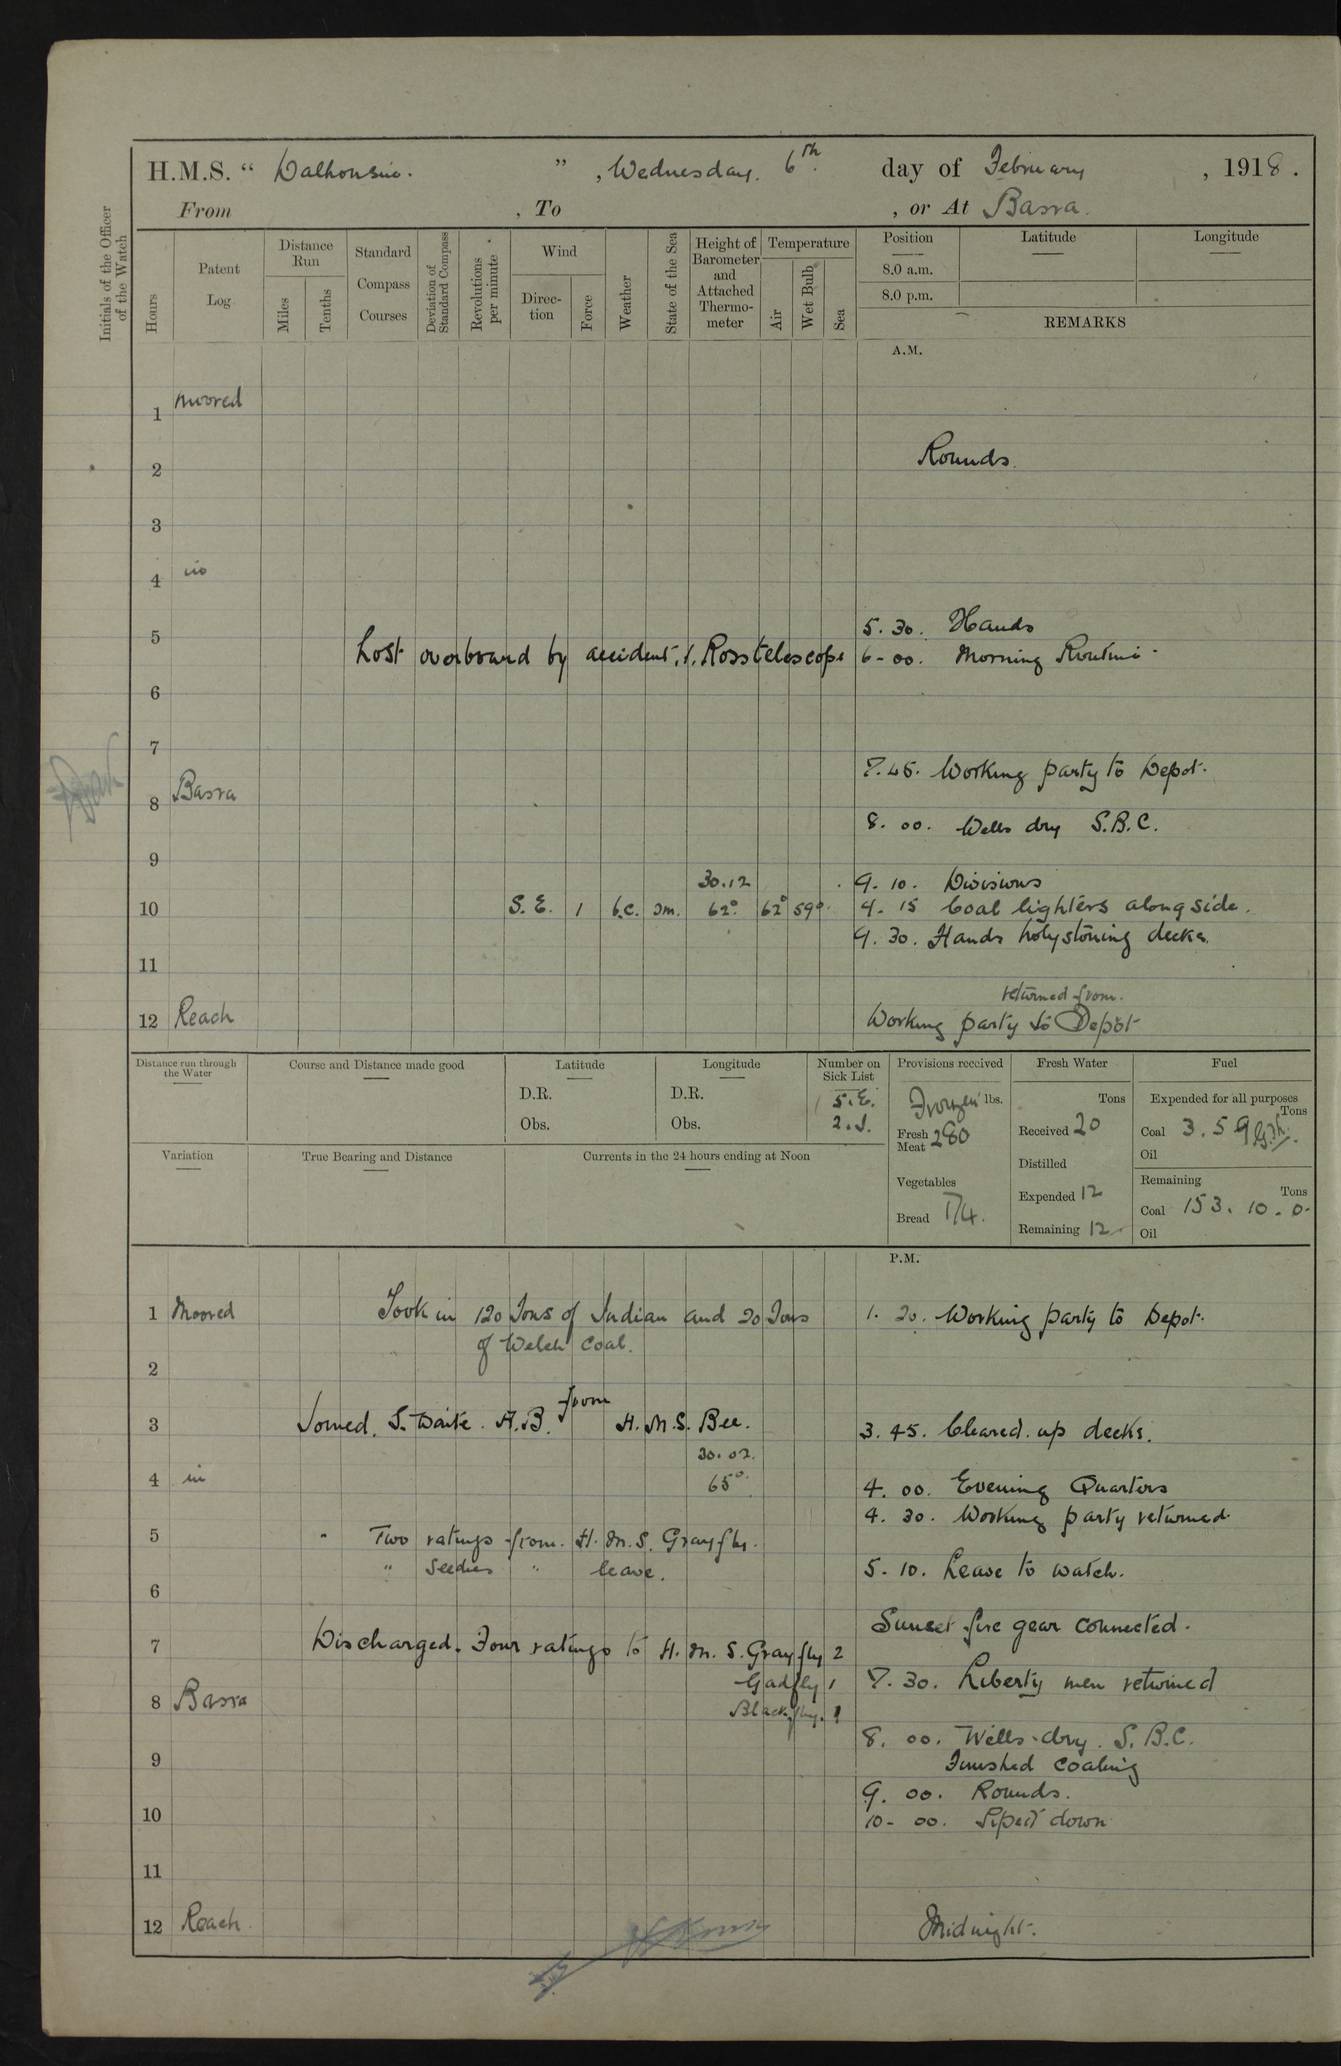 H.M.S. “ Dalhousie. ”, Wednesday. 6th day of February, 1918.
From , To , or At Basra.
Initials of the Officer of the Watch
Hours
Patent Log
Distance Run
Miles
Tenths
Standard Compass Courses
Deviation of Standard Compass
Revolutions per minute
Wind
Direc-tion
Force
Weather
State of the Sea
Height of Barometer and Attached Thermo-meter
Temperature
Air
Wet Bulb
Sea
Position Latitude Longitude
8.0 a.m.
8.0 p.m.
REMARKS
A.M.
1 moored
2 Rounds.
3
4 in
5 5.30. Hands
Lost overboard by accident, 1. Ross telescope 6-00. Morning Routine
6
7
7.45. Working party to Depot.
8 Basra
8.00. Wells dry S.B.C.
9
30.12 9.10. Divisions
10 S.E. 1 b.c. sm. 62° 62° 59° 9.15 Coal lighters alongside.
9.30. Hands holystoning decks.
11
returned from.
12 Reach Working party to Depot
Distance run through the Water
Course and Distance made good
Latitude
D.R.
Obs.
Longitude
D.R.
Obs.
Number on Sick List
5.E.
2.I.
Provisions received
Frozen lbs.
Fresh Meat 280
Vegetables
Bread 174.
Fresh Water
Tons
Received 20
Distilled
Expended 12
Remaining 12
Fuel
Expended for all purposes
Tons
Coal 3.5
Oil
Remaining
Tons
Coal 153.10.0.
Oil
Variation
True Bearing and Distance
Currents in the 24 hours ending at Noon
P.M.
1 Moored Took in 120 Tons of Indian and 20 Tons 1.20. Working party to Depot.
of Welch coal.
2
3 Joined. S. Waite. A.B. from H.M.S. Bee. 3.45. Cleared up decks.
30.02.
4 in 65° 4.00. Evening Quarters
4.30. Working party returned.
5 " Two ratings from H.M.S. Grayfly.
" Seedies " leave. 5.10. Leave to watch.
6
Sunset fire gear connected.
7 Discharged. Four ratings to H.M.S. Grayfly 2
Gadfly 1 7.30. Liberty men returned
8 Basra Blackfly. 1
8.00. Wells dry. S.B.C.
9 Finished coaling
9.00. Rounds.
10 10-00. Piped down
11
12 Reach. Midnight.